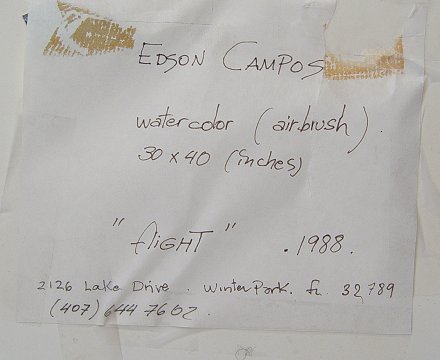 EDSON CAMPOS
watercolor (airbrush).
30 x 40 (inches)
"fliGHT" . 1988.
2126 Lake Drive . Winter Park. fl. 32789
(407) 644 7602.